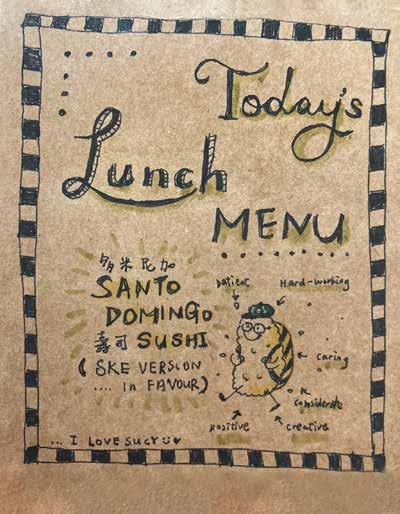 Today's
Lunch
MENU
多米尼加
SANTO
DOMINGO
壽司 SUSHI
( SKE VERSION
.... in FAVOUR)
Patient
Hard-working
caring
considerate
creative
positive
... I LOVE SUCY